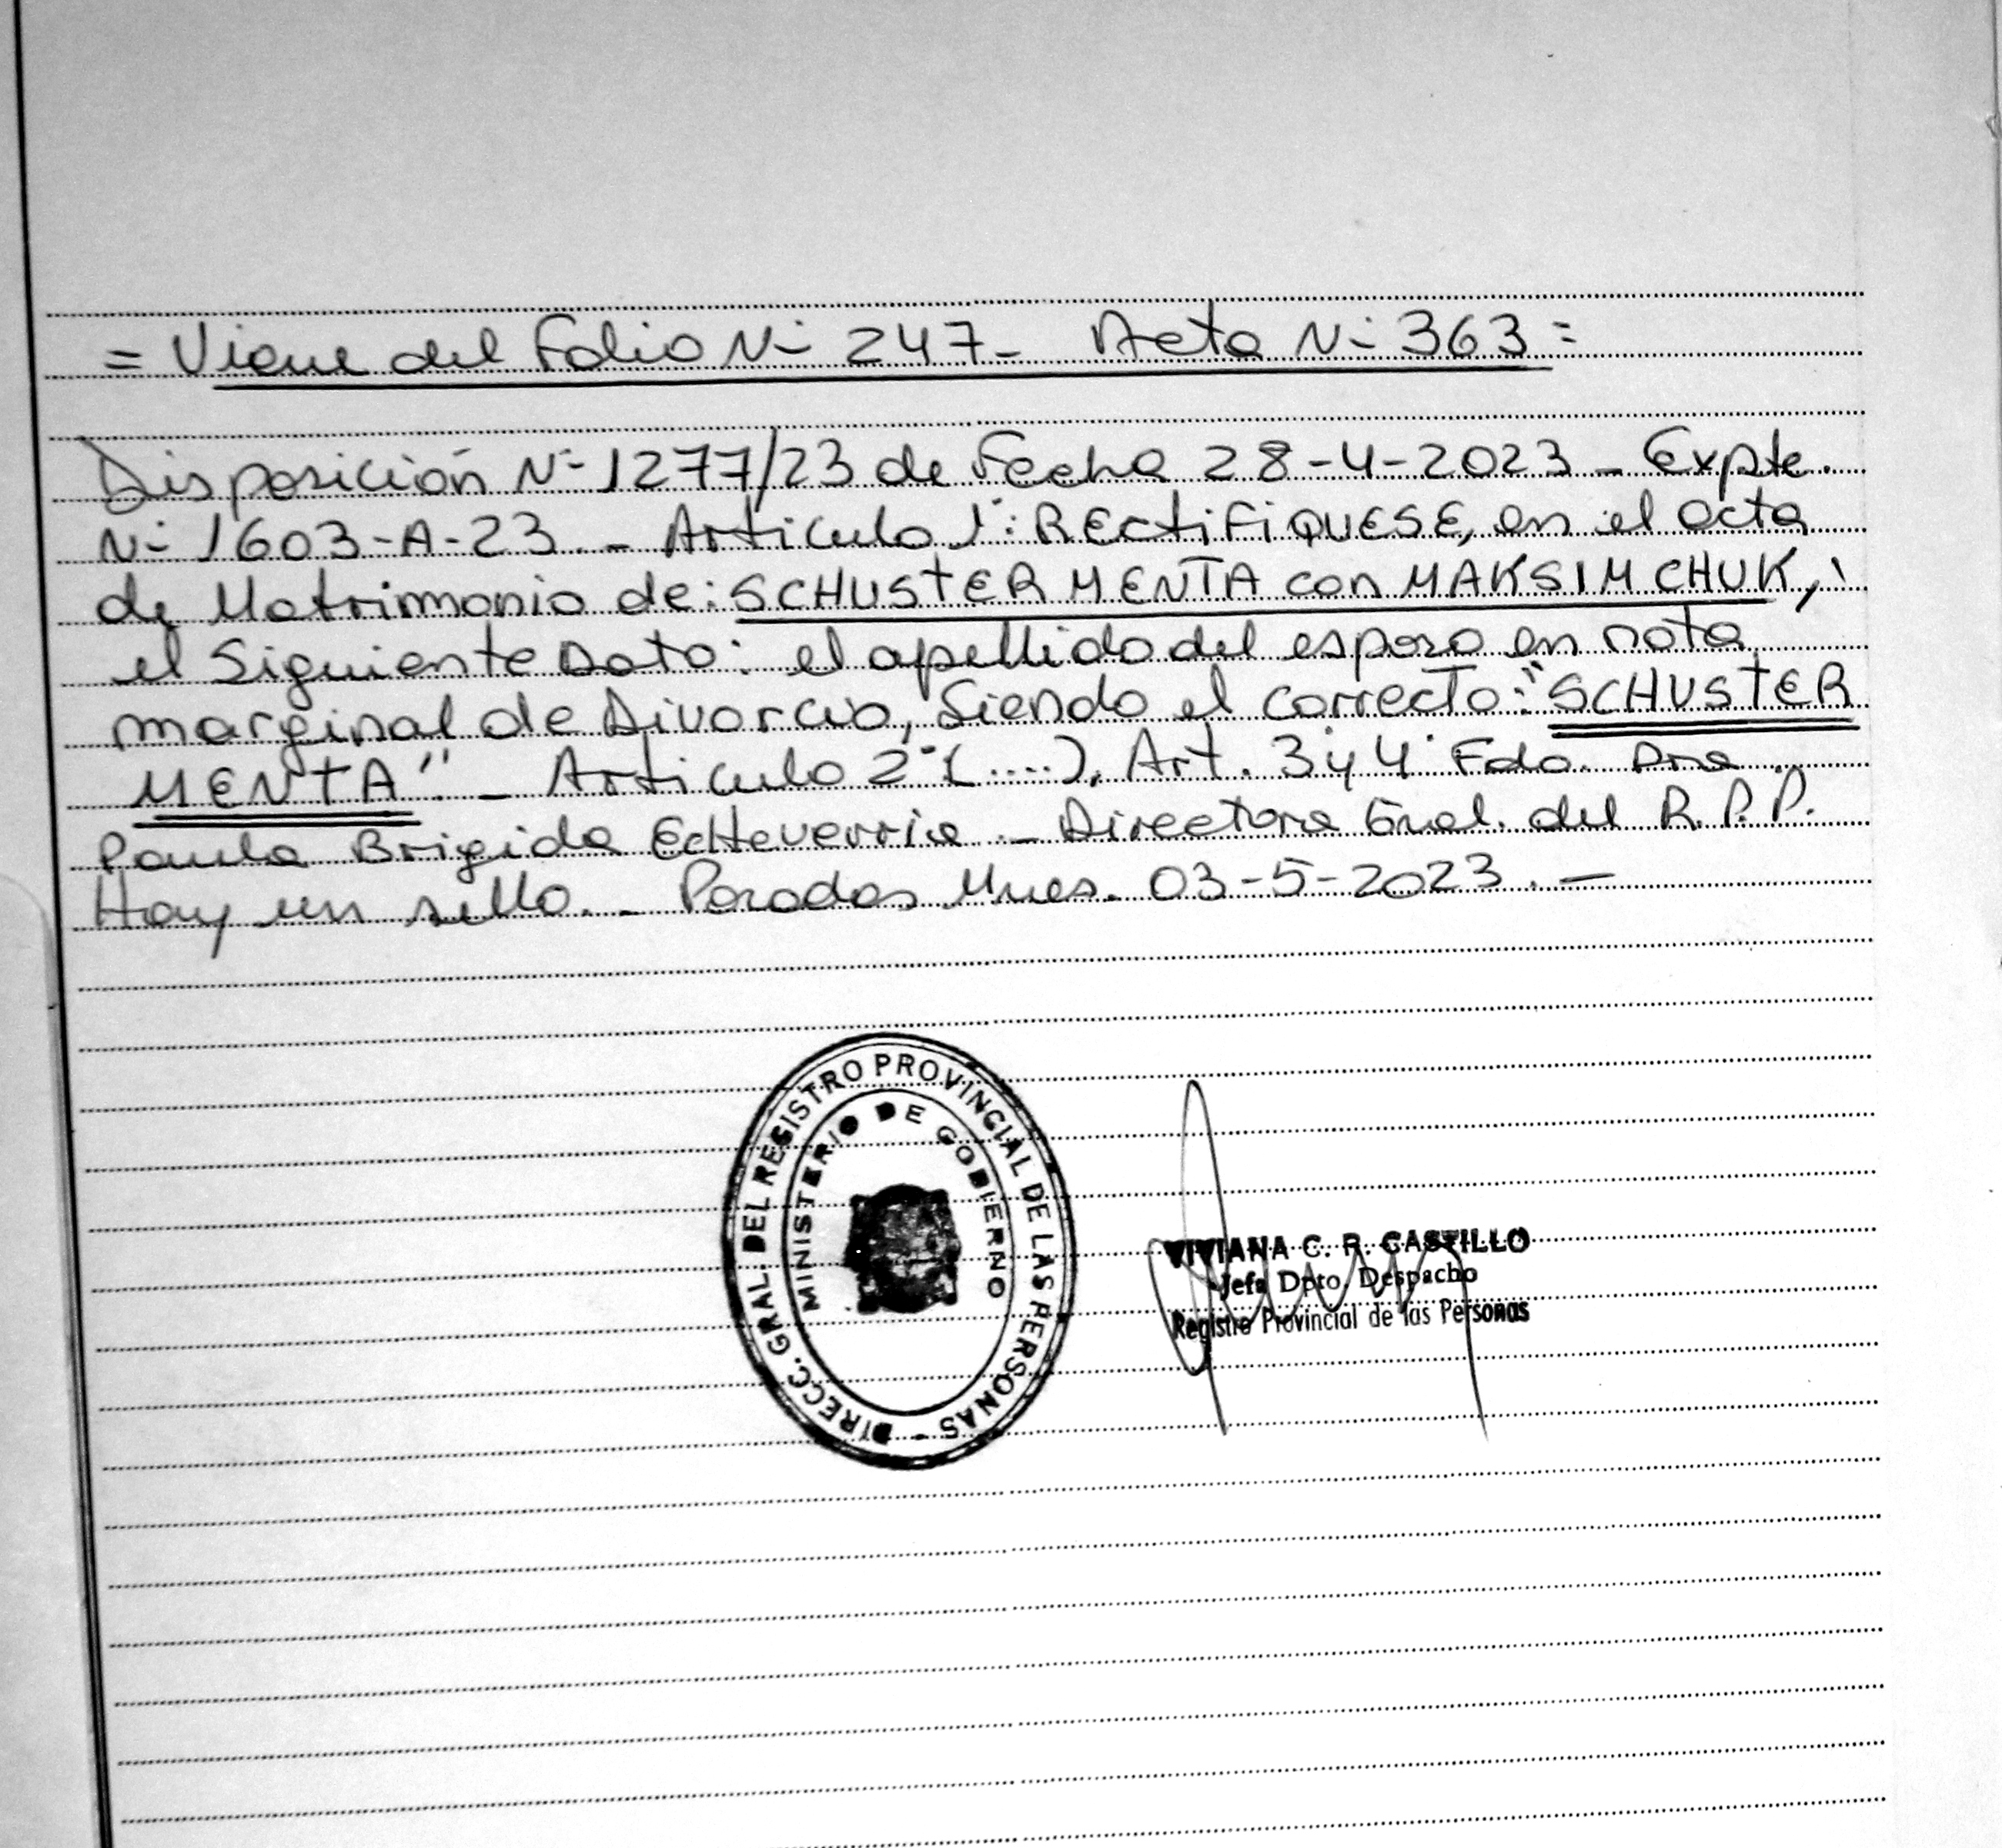 = Viene del Folio Nº 247 - Acta Nº 363 =
Disposición Nº 1277/23 de Fecha 28-4-2023 - Expte.
Nº 1603-A-23. - Articulo 1º: RECtiFiQUESE, en el acta
de Matrimonio de: SCHUSTER MENTA con MAKSIMCHUK,
el siguiente Dato: el apellido del esposo en nota
marginal de Divorcio, Siendo el correcto: "SCHUSTER
MENTA" - Articulo 2º (....). Art. 3 y 4º Fdo. Dra
Paula Brigida Echeverria - Directora Gral. del R.P.P.
Hay un sello. - Posadas Mnes. 03-5-2023. -
DIRECC. GRAL. DEL REGISTRO PROVINCIAL DE LAS PERSONAS -
MINISTERIO DE GOBIERNO
VIVIANA C. R. CASTILLO
Jefa Dpto. Despacho
Registro Provincial de las Personas